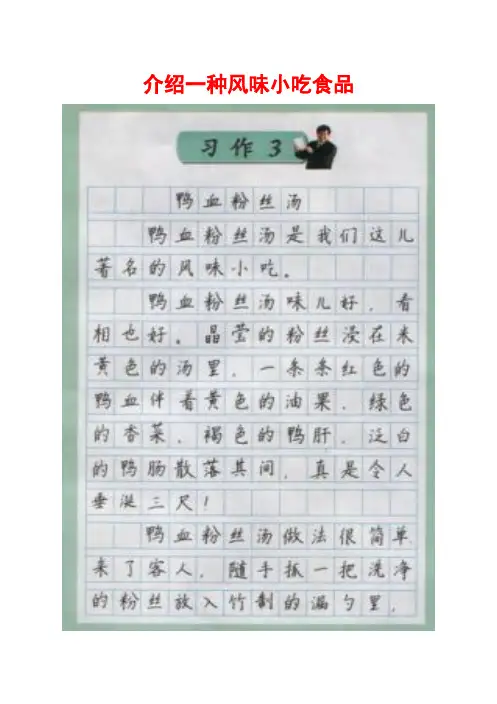 介绍一种风味小吃食品
习作3
鸭血粉丝汤
鸭血粉丝汤是我们这儿
著名的风味小吃。
鸭血粉丝汤味儿好，看
相也好。晶莹的粉丝浸在米
黄色的汤里，一条条红色的
鸭血伴着黄色的油果、绿色
的香菜、褐色的鸭肝、泛白
的鸭肠散落其间，真是令人
垂涎三尺！
鸭血粉丝汤做法很简单
来了客人，随手抓一把洗净
的粉丝放入竹制的漏勺里，